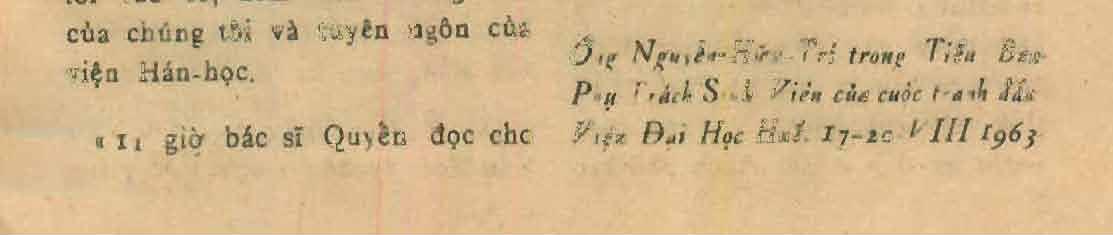 của chúng tôi và tuyên ngôn của
viện Hán-học.
« 11 giờ bác sĩ Quyền đọc cho
Ông Nguyễn-Hữu-Trí trong Tiểu Ban
Phụ Trách Sinh Viên của cuộc tranh đấu
Viện Đại Học Huế. 17-20 VIII 1963